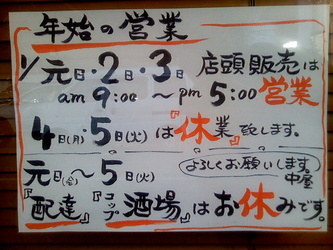 年始の営業
1/元日・2日・3日 店頭販売は
am 9:00 ～ pm 5:00 営業
4日(月)・5日(火)は『休業』致します。
元日(金)～5日(火) よろしくお願いします。中屋
『配達』『コップ酒場』はお休みです。